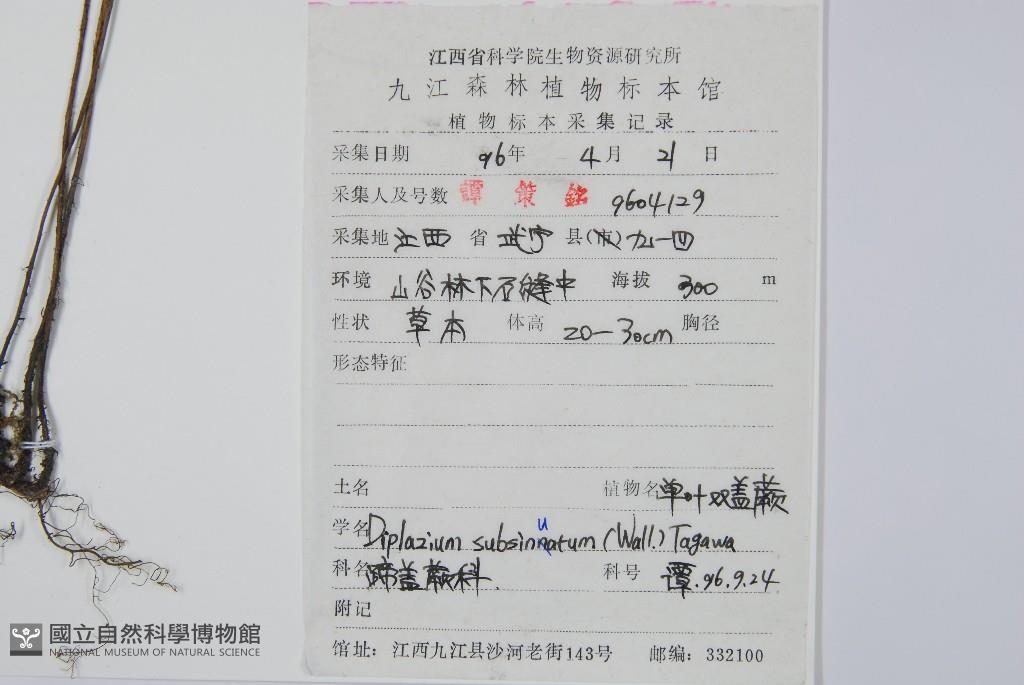 江西省科学院生物资源研究所
九江森林植物标本馆
植物标本采集记录
采集日期 96年 4月 21日
采集人及号数 譚策銘 9604129
采集地 江西 省 武宁 县(市) 九一四
环境 山谷林下石缝中 海拔 300 m
性状 草本 体高 20-30cm 胸径
形态特征
土名 植物名 单叶双盖蕨
学名 Diplazium subsinuatum (Wall.) Tagawa
科名 蹄盖蕨科 科号 谭.96.9.24
附记
馆址: 江西九江县沙河老街143号 邮编: 332100
國立自然科學博物館
NATIONAL MUSEUM OF NATURAL SCIENCE